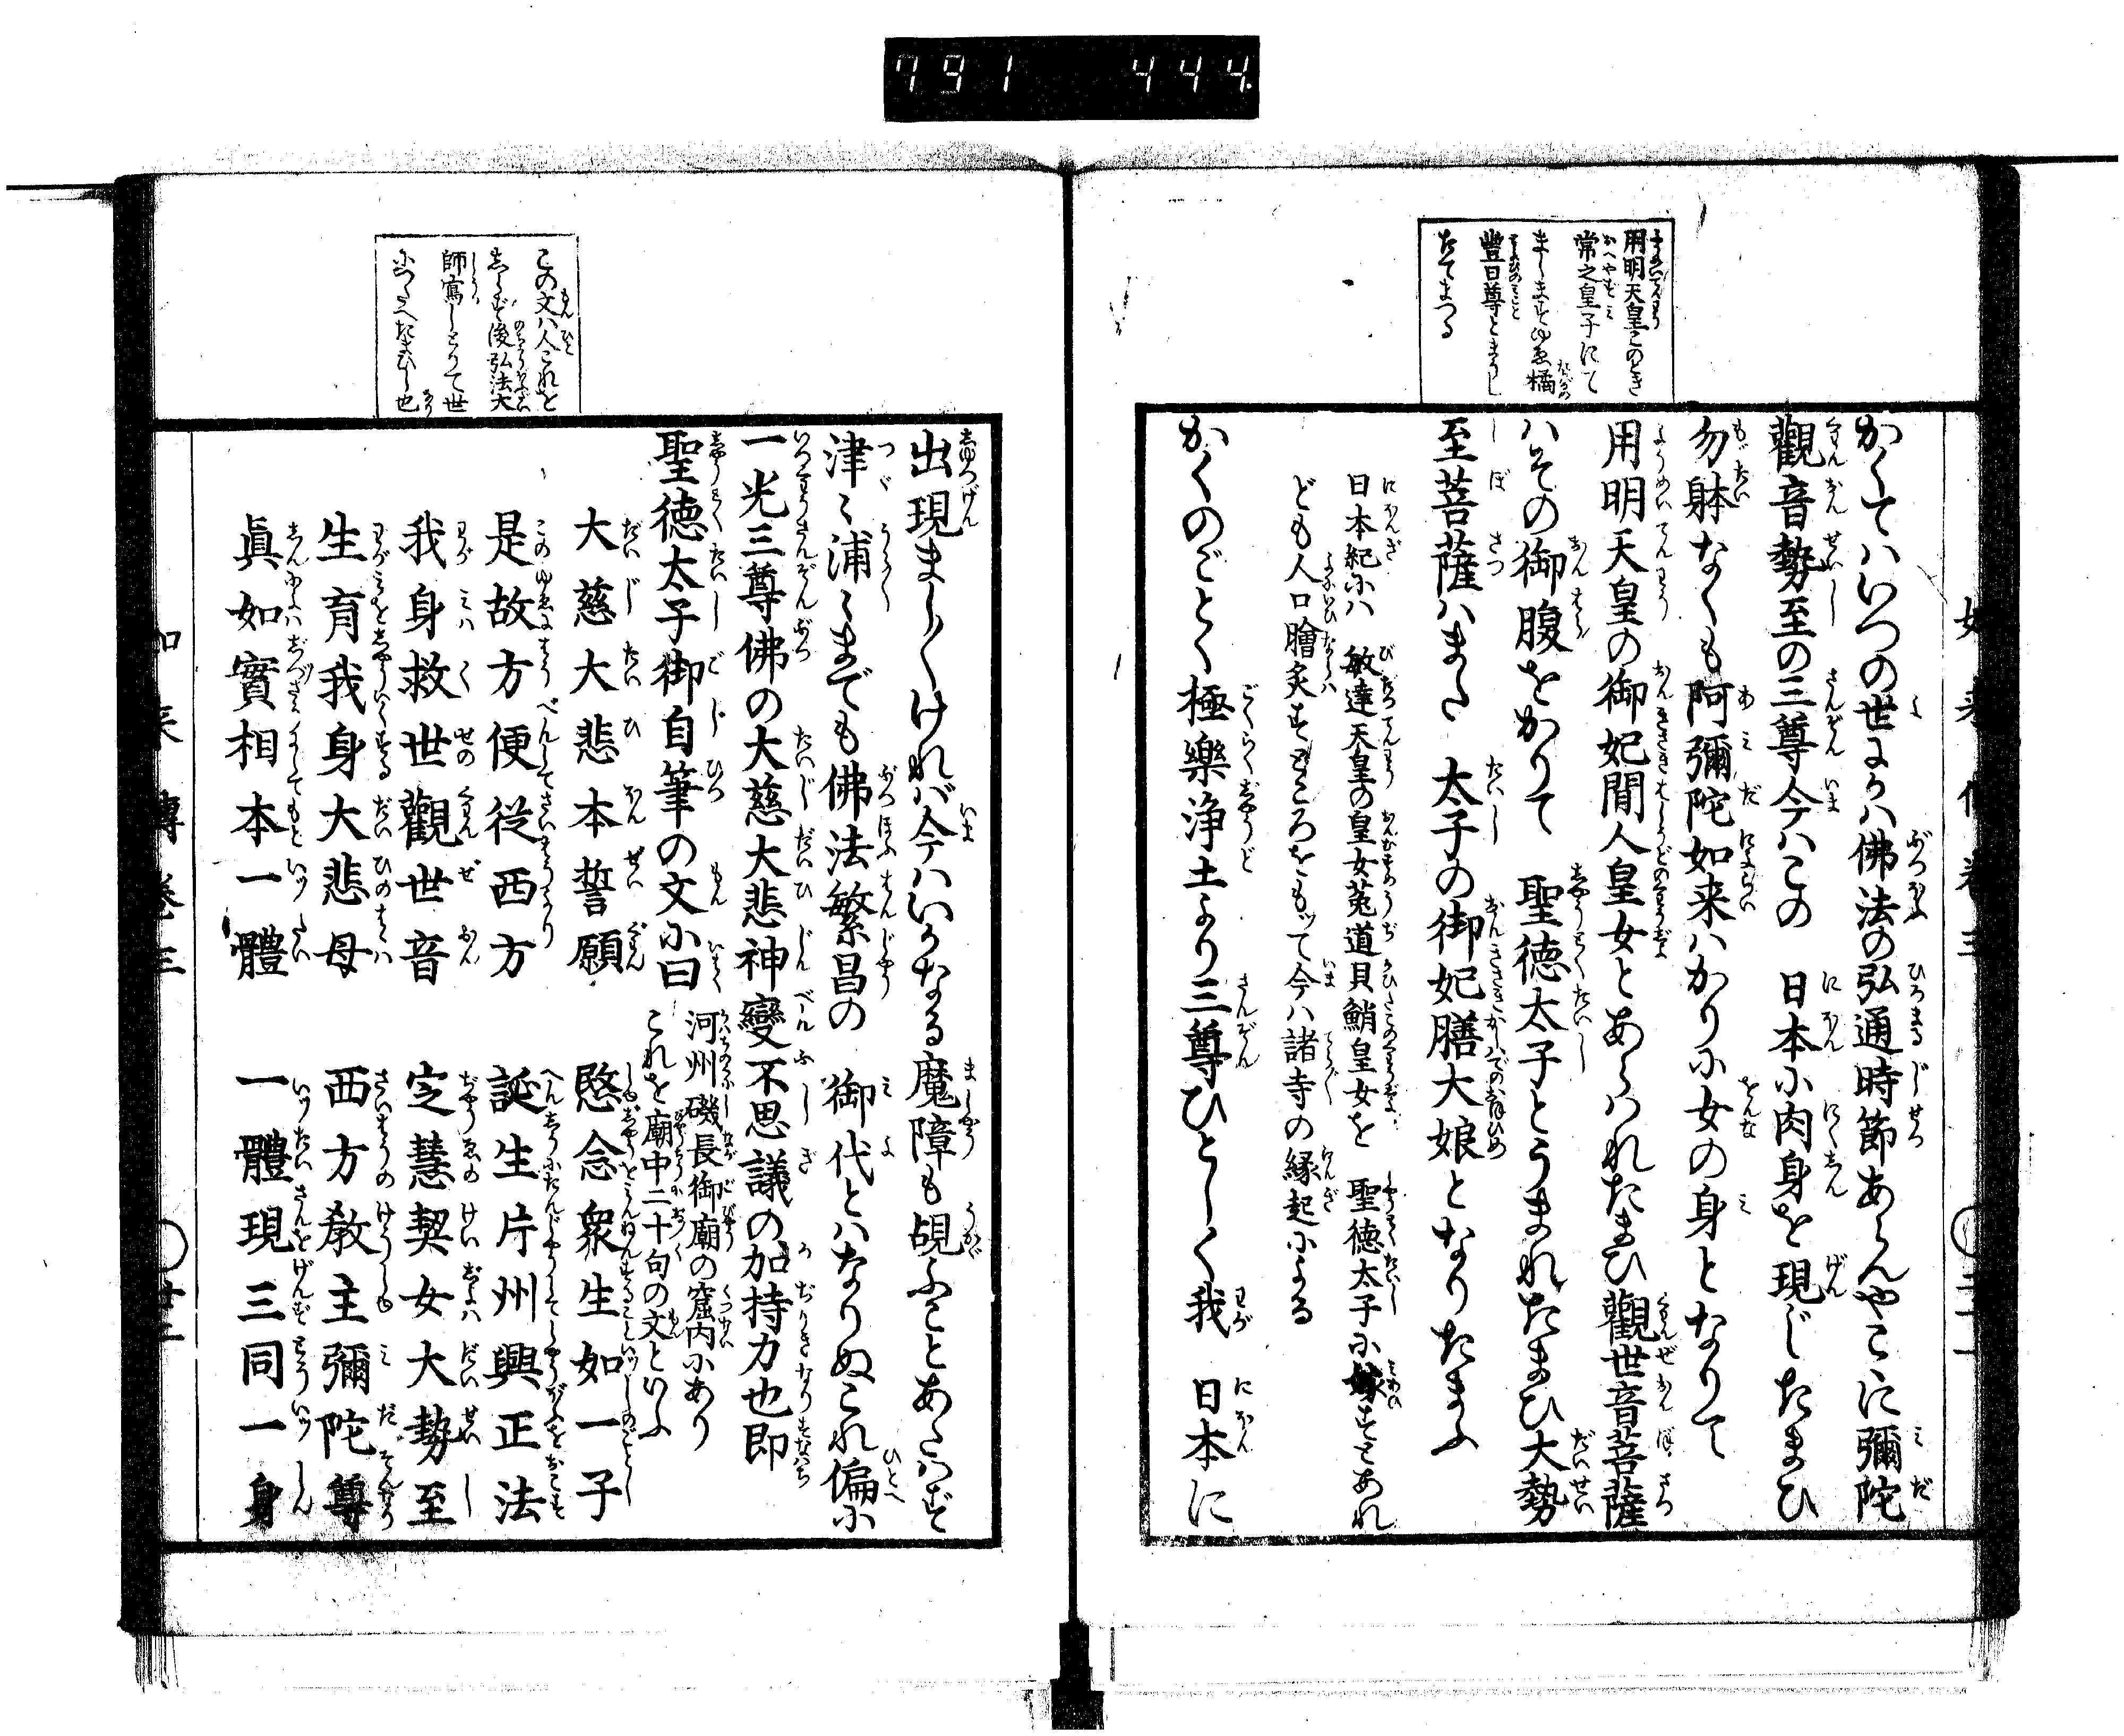 791 444
用明天皇このとき
常之皇子にて
ましますゆゑ橘
豐日尊とまうし
たてまつる
かくてハいつの世にかハ佛法の弘通時節あらんやこゝに彌陀
觀音勢至の三尊今ハこの 日本に肉身を現じたまひ
勿躰なくも阿彌陀如来ハかりに女の身となりて
用明天皇の御妃間人皇女とあらハれたまひ觀世音菩薩
ハその御腹をかりて 聖徳太子とうまれたまひ大勢
至菩薩ハまた 太子の御妃膳大娘となりたまふ
日本紀にハ 敏達天皇の皇女菟道貝鮹皇女を 聖徳太子に嫁すとあれ
ども人口膾炙するところをもッて今ハ諸寺の縁起による
かくのごとく極樂浄土より三尊ひとしく我 日本に
この文ハ人これを
しらず後弘法大
師寫しとりて世
につたへたまひし也
出現ましましけれバ今ハいかなる魔障も覘ふことあたハず
津々浦々までも佛法繁昌の 御代とハなりぬこれ偏に
一光三尊佛の大慈大悲神變不思議の加持力也即
聖徳太子御自筆の文に曰
河州磯長御廟の窟内にあり
これを廟中二十句の文といふ
大慈大悲本誓願 愍念衆生如一子
是故方便従西方 誕生片州興正法
我身救世觀世音 定慧契女大勢至
生育我身大悲母 西方教主彌陀尊
眞如實相本一體 一體現三同一身
如来傳巻三